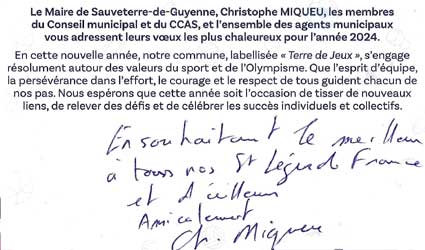 Le Maire de Sauveterre-de-Guyenne, Christophe MIQUEU, les membres
du Conseil municipal et du CCAS, et l'ensemble des agents municipaux
vous adressent leurs vœux les plus chaleureux pour l'année 2024.
En cette nouvelle année, notre commune, labellisée « Terre de Jeux », s'engage
résolument autour des valeurs du sport et de l'Olympisme. Que l'esprit d'équipe,
la persévérance dans l'effort, le courage et le respect de tous guident chacun de
nos pas. Nous espérons que cette année soit l'occasion de tisser de nouveaux
liens, de relever des défis et de célébrer les succès individuels et collectifs.
En souhaitant le meilleur
à tous nos St Léger de France
et d'ailleurs
Amicalement
Ch. Miqueu